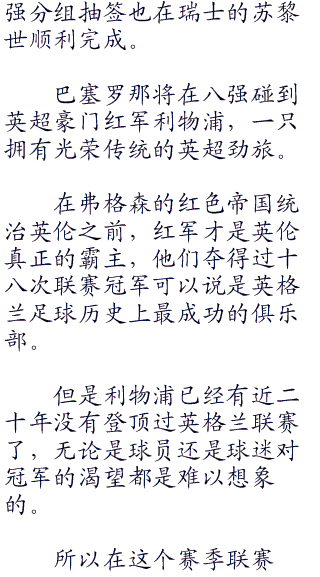 强分组抽签也在瑞士的苏黎
世顺利完成。
巴塞罗那将在八强碰到
英超豪门红军利物浦，一只
拥有光荣传统的英超劲旅。
在弗格森的红色帝国统
治英伦之前，红军才是英伦
真正的霸主，他们夺得过十
八次联赛冠军可以说是英格
兰足球历史上最成功的俱乐
部。
但是利物浦已经有近二
十年没有登顶过英格兰联赛
了，无论是球员还是球迷对
冠军的渴望都是难以想象
的。
所以在这个赛季联赛